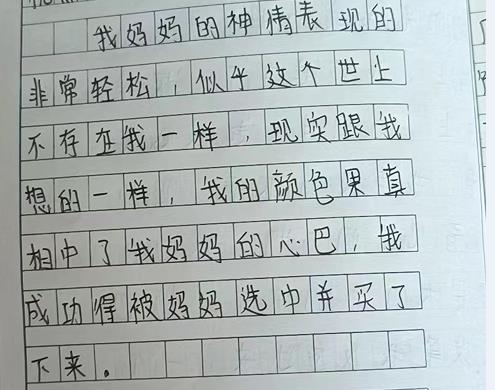 我妈妈的神情表现的
非常轻松，似乎这个世上
不存在我一样，现实跟我
想的一样，我的颜色果真
相中了我妈妈的心巴，我
成功得被妈妈选中并买了
下来。